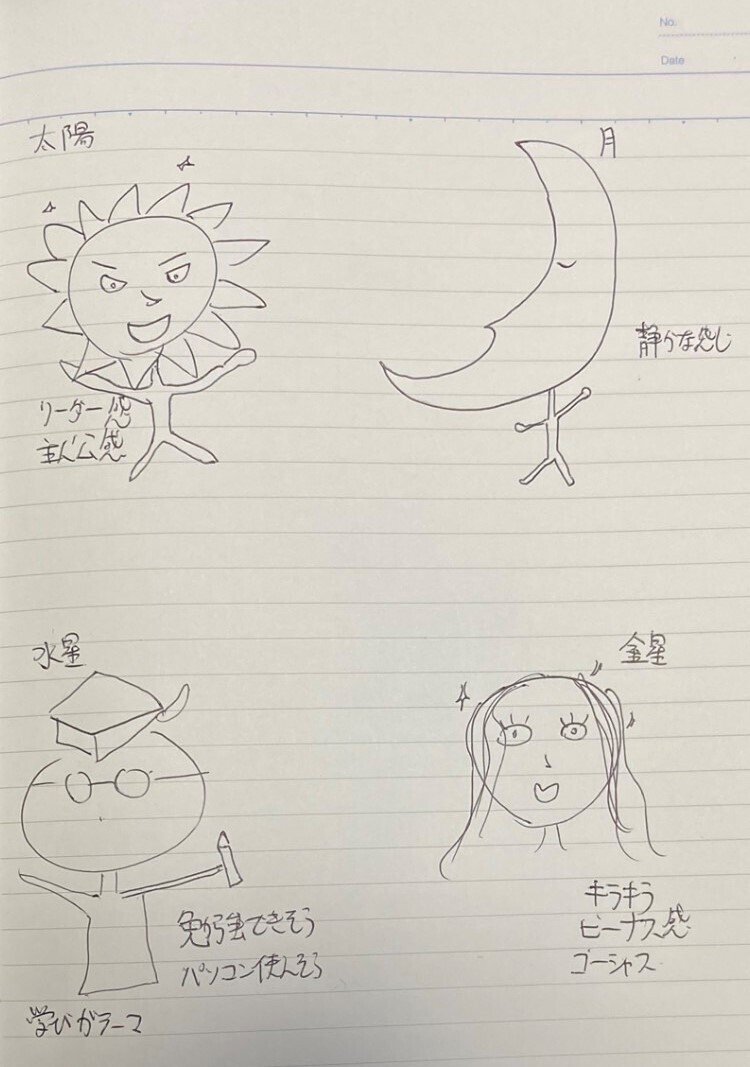 No.
Date
太陽
月
静かな感じ
リーダー感
主人公感
水星
金星
勉強できそう
パソコン使えそう
学びがテーマ
キラキラ
ビーナス感
ゴージャス